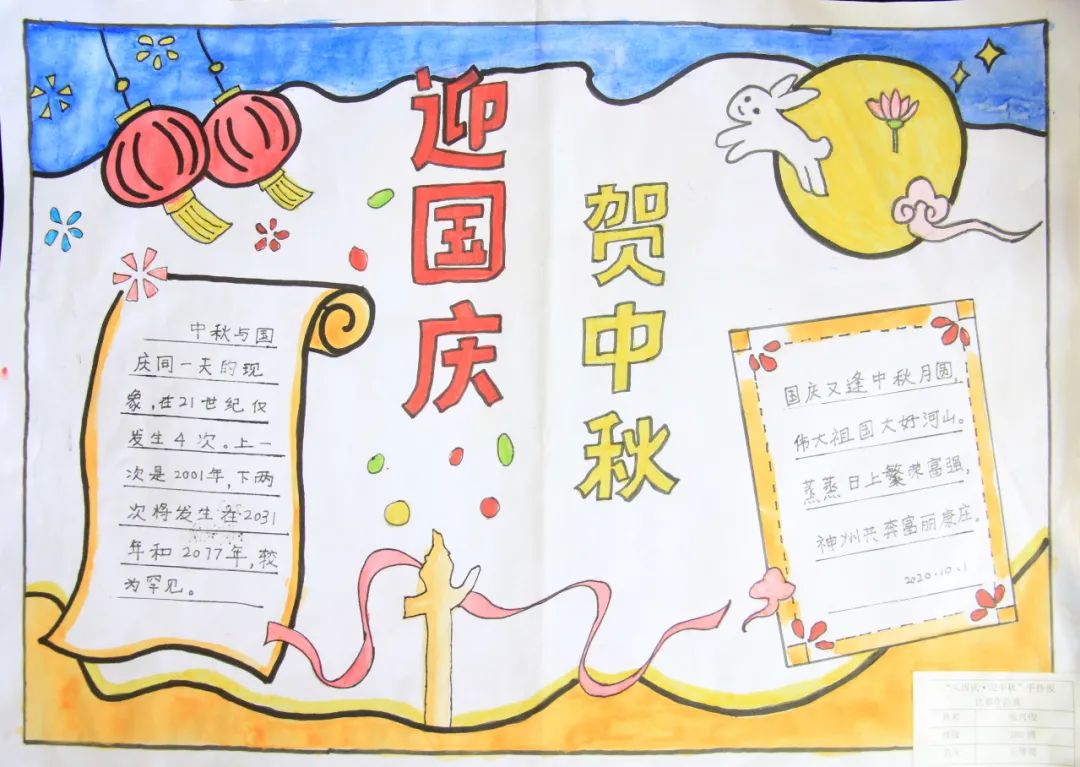 迎国庆
贺中秋
中秋与国
庆同一天的现
象,在21世纪仅
发生4次。上一
次是2001年,下两
次将发生在2031
年和2077年,较
为罕见。
国庆又逢中秋月圆,
伟大祖国大好河山。
蒸蒸日上繁荣富强,
神州共奔富丽康庄。
2020.10.1